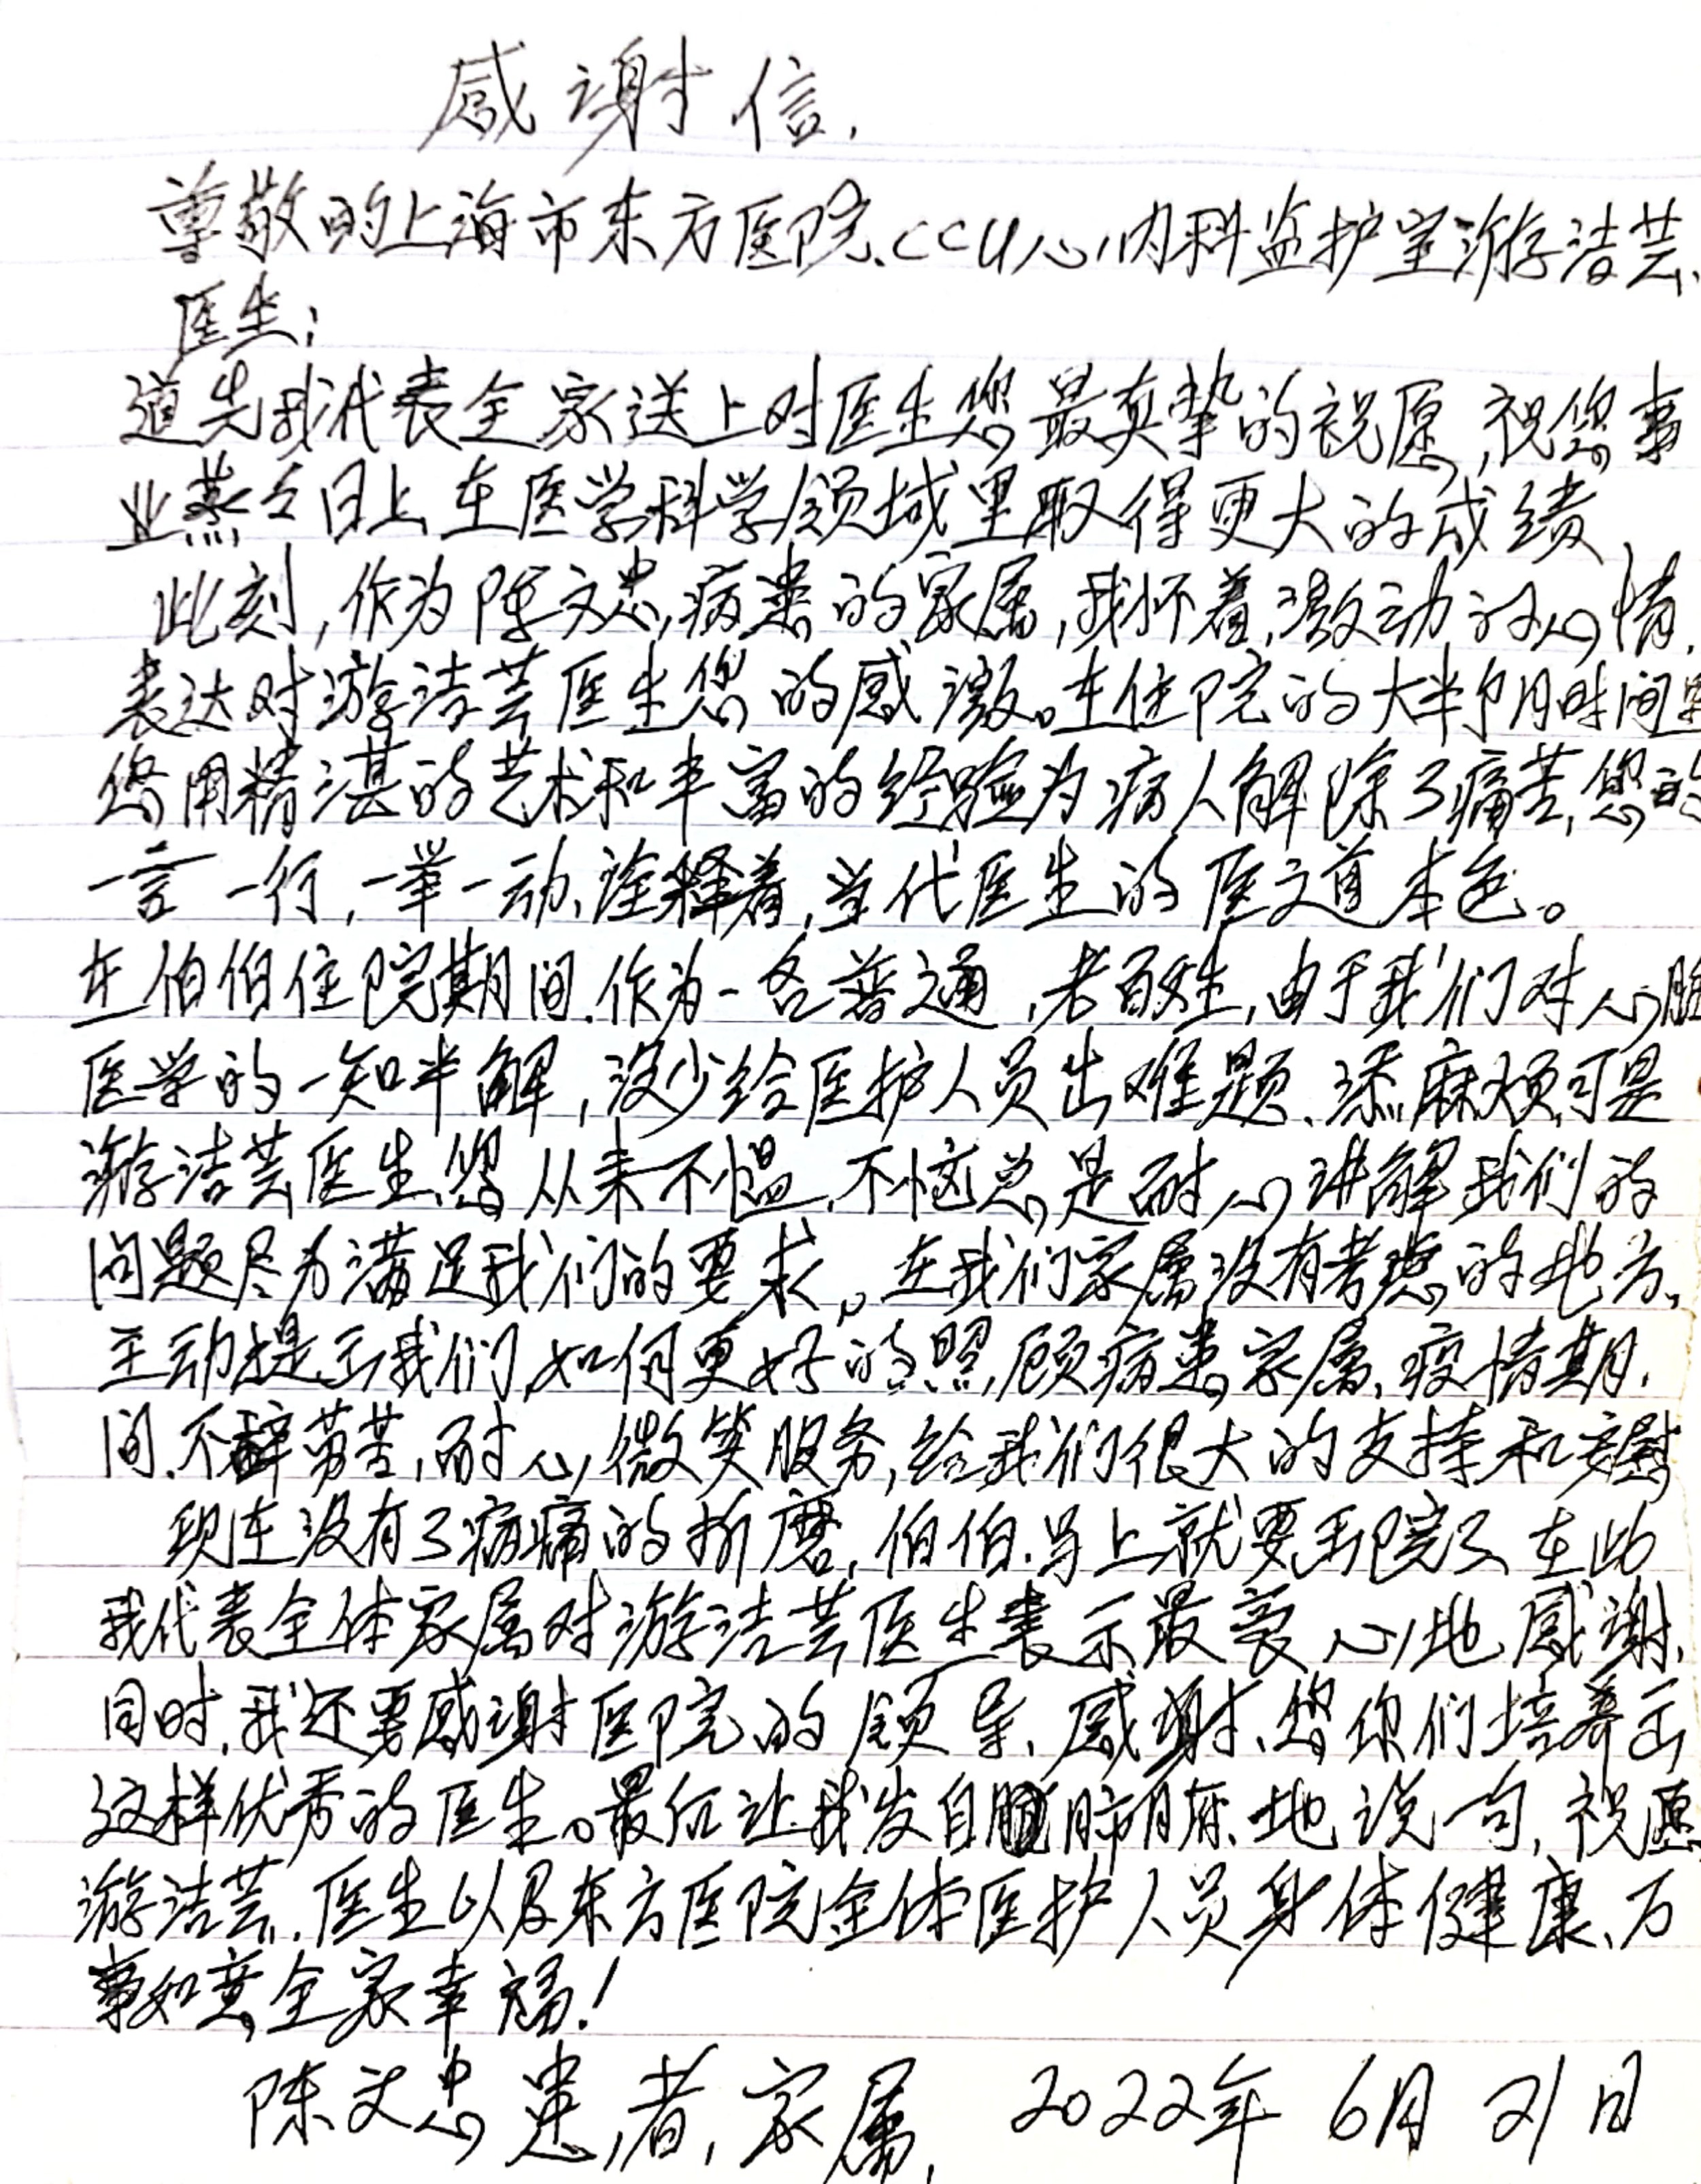 感谢信.
尊敬的上海市东方医院、CCU心内科监护室游洁芸、
医生:
道先我代表全家送上对医生您最真挚的祝愿,祝您事
业蒸々日上、在医学科学领域里取得更大的成绩、
此刻,作为陈文忠,病患的家属,我怀着,激动的心情.
表达对游洁芸医生您的感激。在住院的大半个月时间里
您用精湛的艺术和丰富的经验为病人解除了痛苦,您的
一言一行,一举一动、诠释着,当代医生的医之道本色。
在伯伯住院期间.作为一名普通,老百姓,由于我们对心脏
医学的一知半解,没少给医护人员出难题、添麻烦,可是
游洁芸医生您从来不愠、不恼总是耐心讲解我们的
问题尽力满足我们的要求。在我们家属没有考虑的地方、
主动提示我们,如何更好的照顾病患家属、疫情期.
间.不辞劳苦,耐心,微笑服务,给我们很大的支持和安慰
现在没有了病痛的折磨,伯伯.马上就要出院了、在此
我代表全体家属对游洁芸医生表示最衷心地感谢.
同时.我还要感谢医院的领导、感谢、您你们培养出
这样优秀的医生。最后让我发自肺腑、地说一句,祝愿
游洁芸.医生以及东方医院全体医护人员身体健康、万
事如意全家幸福!
陈文忠患者,家属, 2022年6月21日